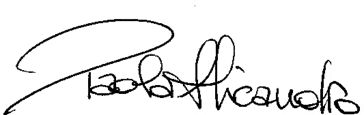 Paola Alicandro